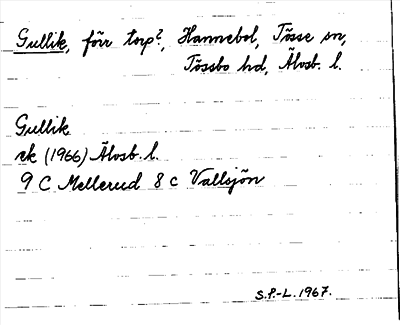 Gullik, förr torp?, Hannebol, Tösse sn,
Tössbo hd, Älvsb. l.
Gullik
ek (1966) Älvsb. l.
9 C Mellerud 8 c Vallsjön
S.P.-L. 1967.